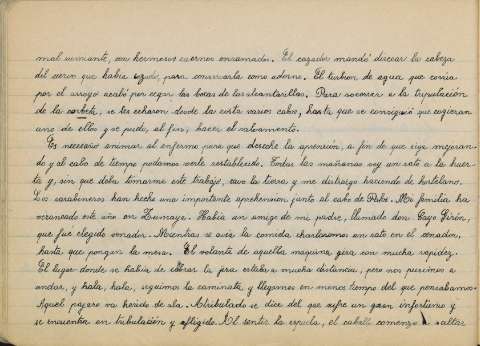 mal rumiante, con hermosos cuernos enramados. El cazador mandó disecar la cabeza
del ciervo que había cazado, para conservarla como adorno. El turbión de agua que corría
por el arroyo acabó por cegar las bocas de las alcantarillas. Para socorrer a la tripulación
de la corbeta, se les echaron desde la costa varios cabos, hasta que se consiguió que cogieran
uno de ellos y se pudo, al fin, hacer el salvamento.
Es necesario animar al enfermo para que deseche la aprensión, a fin de que siga mejoran-
do y al cabo de tiempo podamos verle restablecido. Todas las mañanas voy un rato a la huer-
ta y, sin que deba tomarme este trabajo, cavo la tierra, y me distraigo haciendo de hortelano.
Los carabineros han hecho una importante aprehensión junto al cabo de Palos. Mi familia ha
veraneado este año en Zumaya. Había un amigo de mi padre, llamado don Gayo Girón,
que fue elegido senador. Mientras se asa la comida charlaremos un rato en el cenador,
hasta que pongan la mesa. El volante de aquella máquina gira con mucha rapidez.
El lugar donde se había de celebrar la jira estaba a mucha distancia, pero nos pusimos a
andar, y hala, hala, seguimos la caminata y llegamos en menos tiempo del que pensábamos.
Aquel pájaro va herido de ala. Atribulado se dice del que sufre un gran infortunio y
se encuentra en tribulación y afligido. Al sentir la espuela, el caballo comenzó a saltar